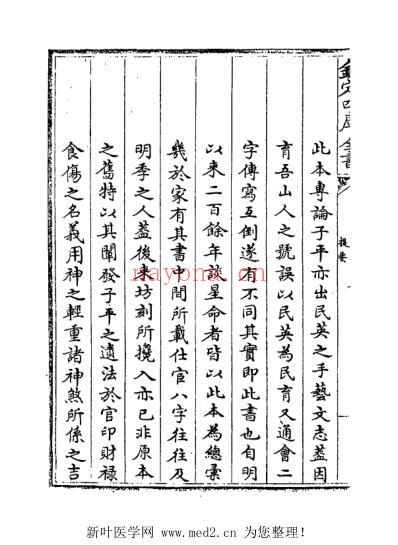 欽定四庫全書
提要
此本專論子平亦出民英之手藝文志蓋因
育吾山人之號誤以民英為民育又通會二
字傳寫互倒遂有不同其實即此書也自明
以來二百餘年談星命者皆以此本為總彚
幾於家有其書中間所載仕宦八字往往及
明季之人蓋後來坊刻所攙入亦已非原本
之舊特以其闡發子平之遺法於官印財祿
食傷之名義用神之輕重諸神煞所係之吉
nayona.cn
新叶医学网 www.med2.cn 为您整理!